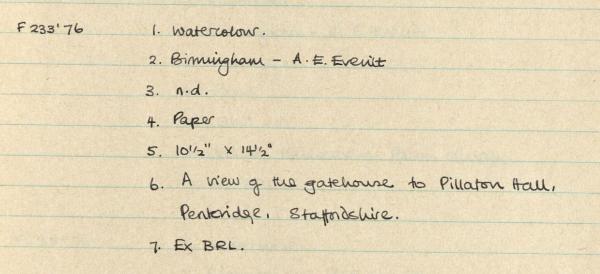 F 233'76 1. Watercolour.
2. Birmingham - A.E. Everitt
3. n.d.
4. Paper
5. 10 1/2" x 14 1/2"
6. A view of the gatehouse to Pillaton Hall,
Penkridge, Staffordshire.
7. Ex BRL.